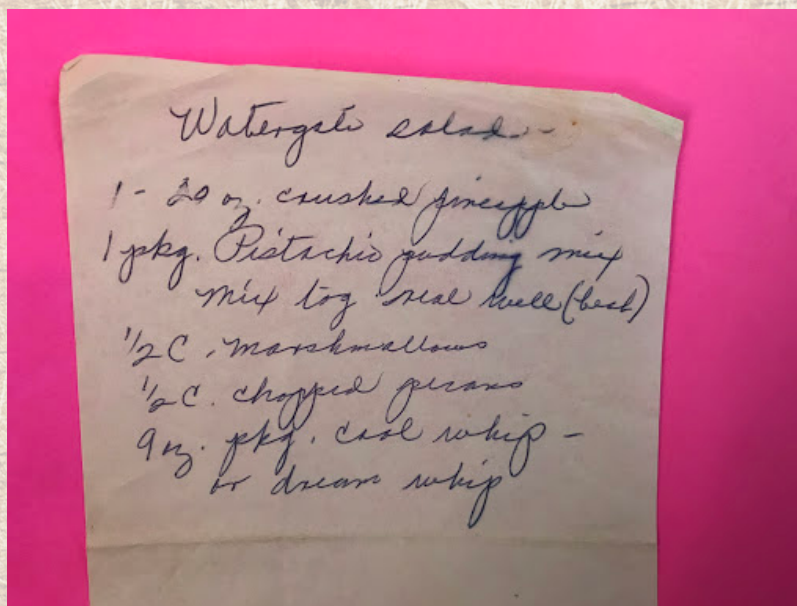 Watergate salad -
1 - 20 oz. crushed pineapple
1 pkg. Pistachio pudding mix
mix tog. real well (beat)
1/2 C. marshmallows
1/2 C. chopped pecans
9 oz. pkg. cool whip -
or dream whip